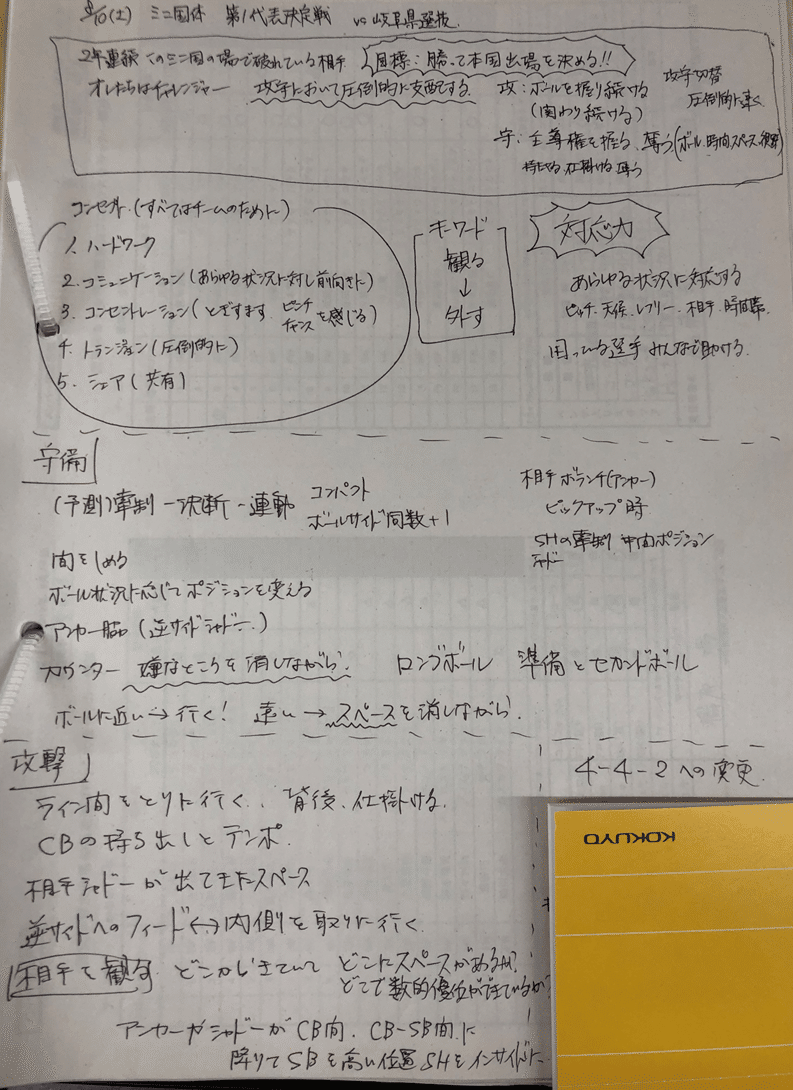 8/10(土) ミニ国体 第1代表決定戦 vs 岐阜県選抜.
2年連続 このミニ国の場で破れている相手 目標:勝って本国出場を決める!!
オレたちはチャレンジャー 攻守において圧倒的に支配する 攻:ボールを握り続ける 攻守切替
(関わり続ける) 圧倒的に速く
守:主導権を握る、奪う(ボール、時間、スペース、
仕掛ける 奪う
コンセプト(すべてはチームのために)
1. ハードワーク
2. コミュニケーション(あらゆる状況に対し前向きに)
3. コンセントレーション(とぎすます ピンチ チャンス を感じる)
4. トランジション(圧倒的に)
5. シェア(共有)
キーワード
観る
↓
外す
対応力
あらゆる状況に対応する
ピッチ、天候、レフリー、相手、時間帯.
困っている選手 みんなで助ける.
守備
(予測)牽制ー決断ー連動 コンパクト
ボールサイド同数+1
相手ボランチ(アンカー)
ピックアップ時
SHの牽制 中間ポジション
シャドー
間をしめる
ボール状況に応じてポジションを変える
アンカー脇(逆サイドシャドー.)
カウンター 嫌なところを消しながら. ロングボール 準備とセカンドボール
ボールに近い→行く! 遠い→スペースを消しながら.
攻撃
4-4-2への変更.
ライン間をとりに行く、背後、仕掛ける.
CBの持ち出しとテンポ.
相手シャドーが出てきたスペース
逆サイドへのフィード↔内側を取りに行く.
相手を観る どこから きていて どこにスペースがあるか?
どこで数的優位ができているか?
アンカーやシャドーがCB間、CB-SB間に
降りてSBを高い位置 SHをインサイドに
KOKUYO